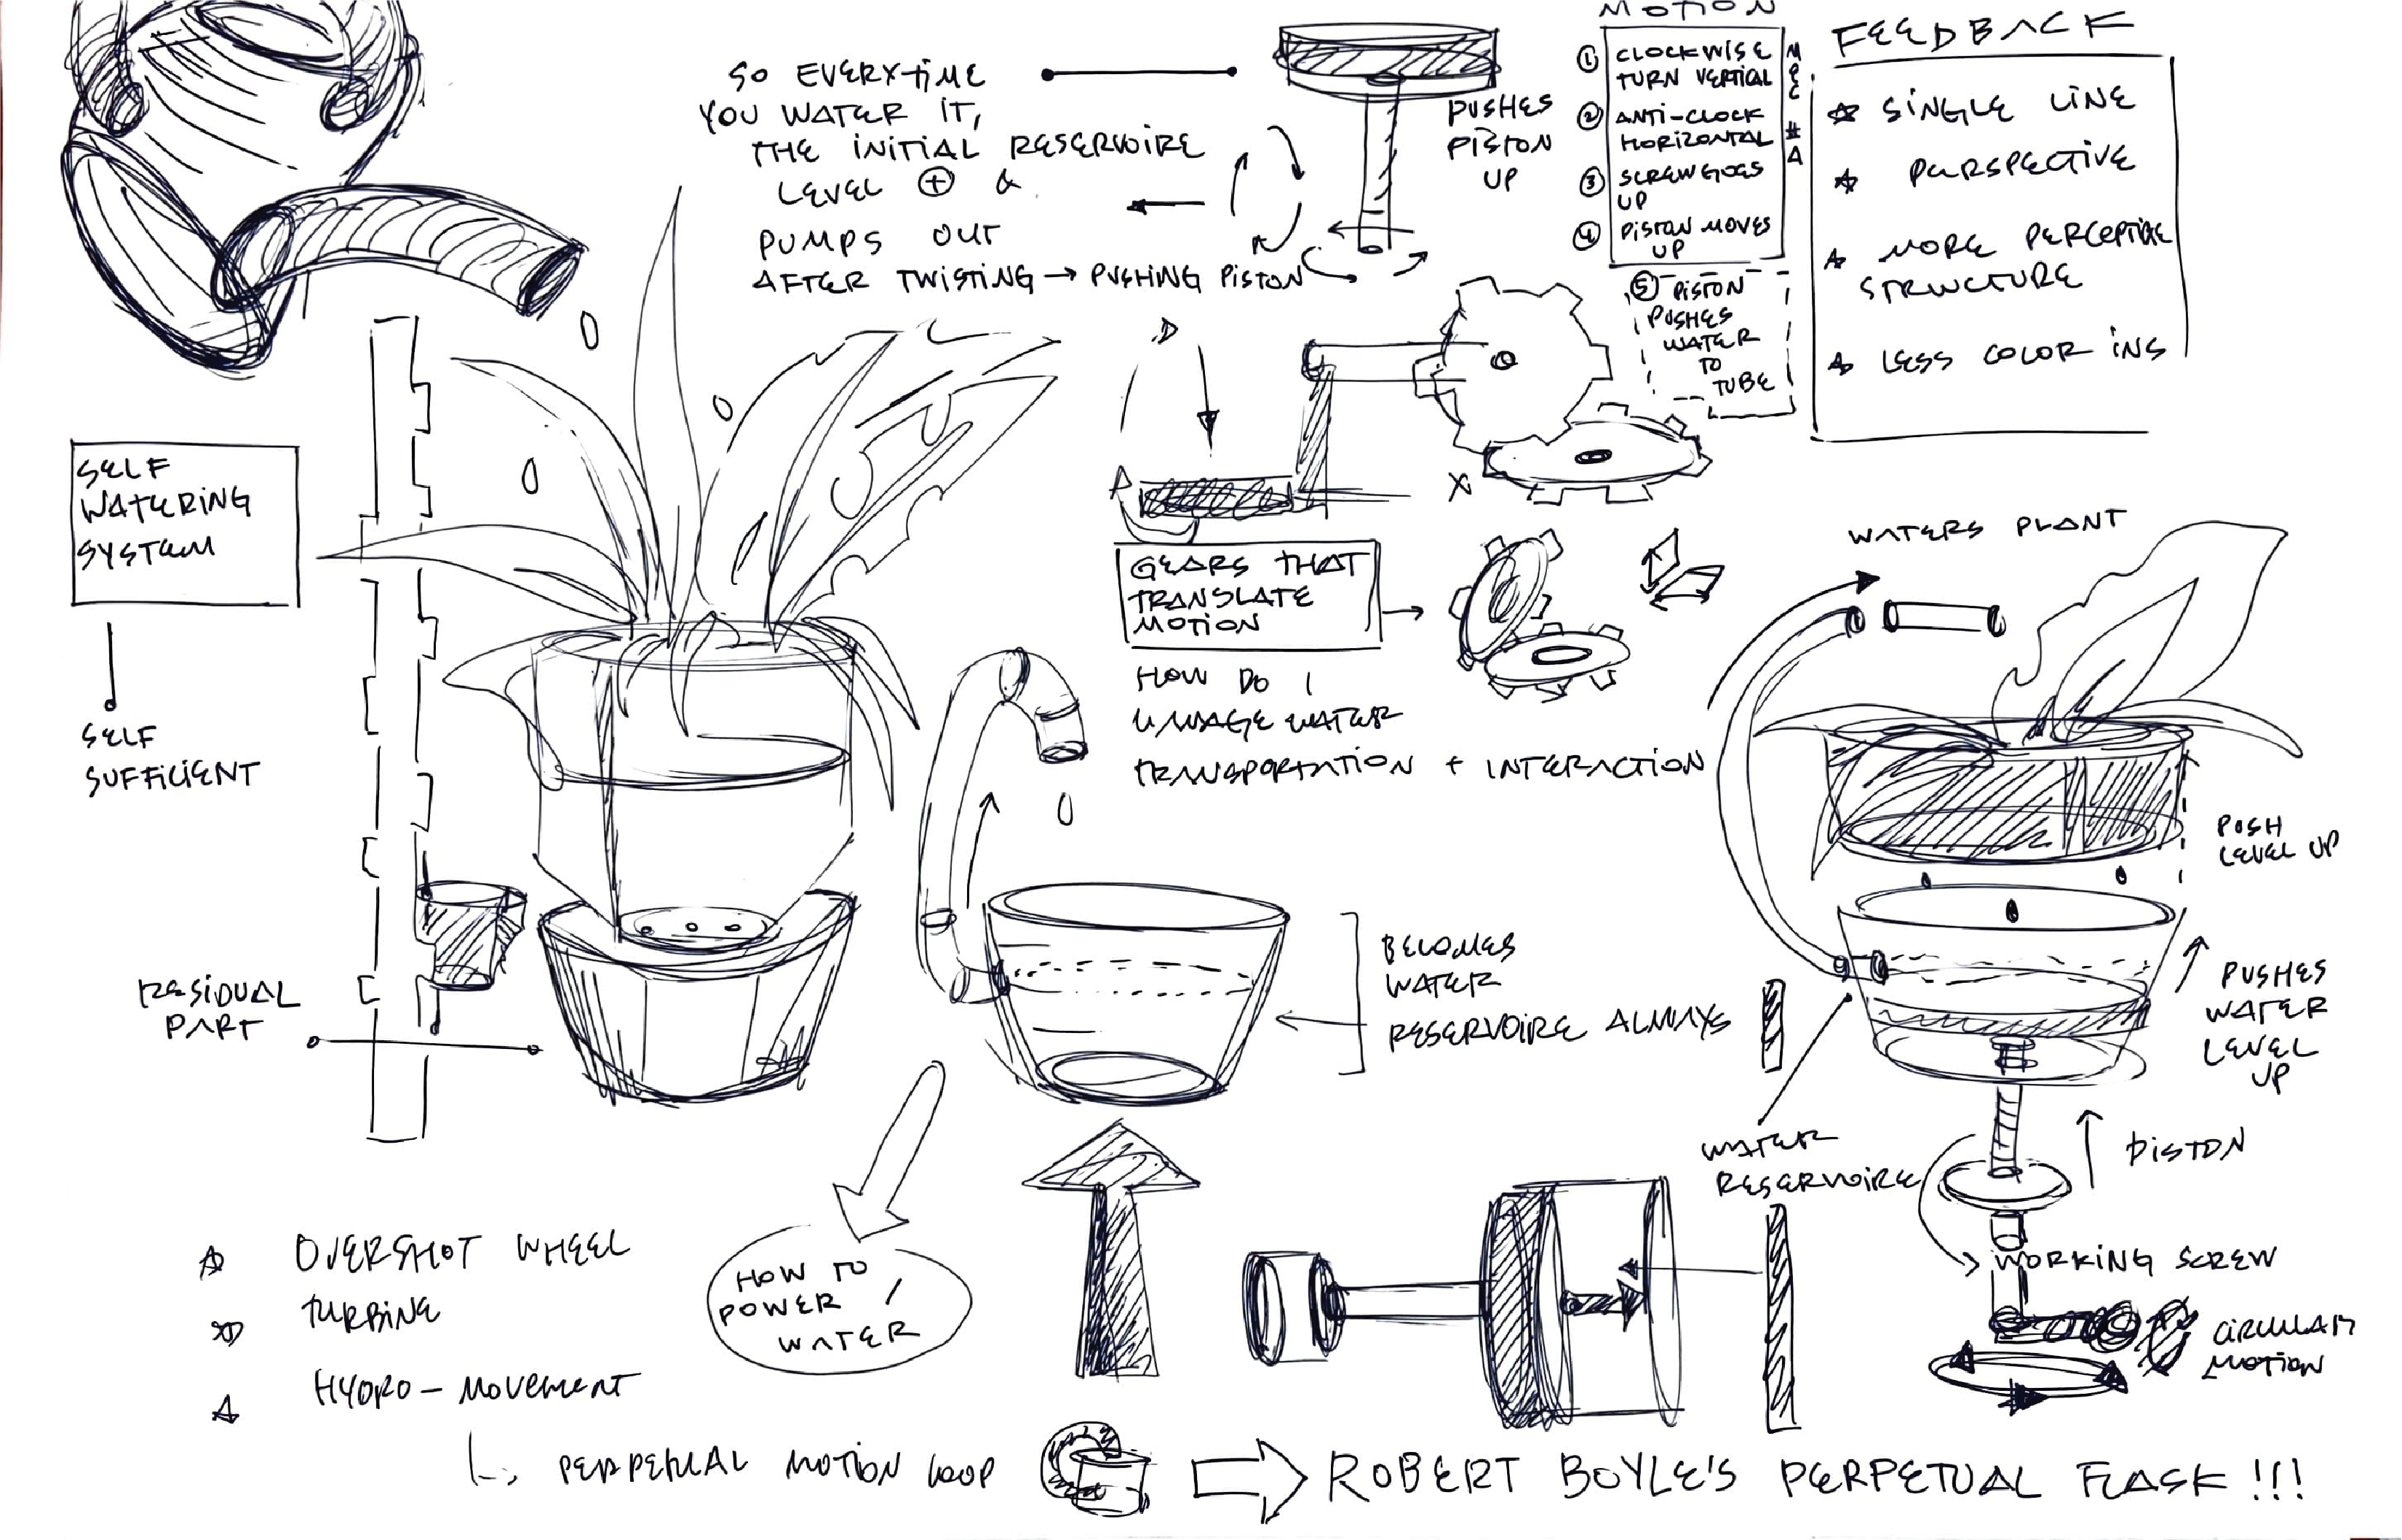 SO EVERYTIME
YOU WATER IT,
THE INITIAL RESERVOIRE
LEVEL + &
PUMPS OUT
AFTER TWISTING → PUSHING PISTON
PUSHES
PISTON
UP
MOTION
1 CLOCKWISE
TURN VERTICAL
2 ANTI-CLOCK
HORIZONTAL
3 SCREW GOES
UP
4 PISTON MOVES
UP
5 PISTON
PUSHES
WATER
TO
TUBE
FEEDBACK
SINGLE LINE
PERSPECTIVE
MORE PERCEPTIVE
STRUCTURE
LESS COLOR INS
SELF
WATERING
SYSTEM
SELF
SUFFICIENT
GEARS THAT
TRANSLATE
MOTION
HOW DO I
WATER
TRANSPORTATION + INTERACTION
WATERS PLANT
PUSH
LEVEL UP
RESIDUAL
PART
BECOMES
WATER
RESERVOIRE ALWAYS
PUSHES
WATER
LEVEL
UP
WATER
RESERVOIRE
PISTON
WORKING SCREW
CIRCULAR
MOTION
OVERSHOT WHEEL
TURBINE
HYDRO-MOVEMENT
PERPETUAL MOTION LOOP
HOW TO
POWER /
WATER
ROBERT BOYLE'S PERPETUAL FLASK !!!